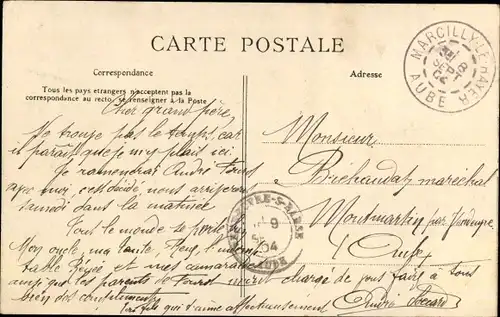 CARTE POSTALE
Correspondance
Adresse
Tous les pays etrangers n'acceptent pas la
correspondance au recto, se renseigner à la Poste
MARCILLY-LE-HAYER
AUBE
Cher grand père,
Ne trouve pas le temps, car
il paraît que je m'y plait ici
Je ramènerai André
avec moi, c'est décidé, nous arriverons
samedi dans la matinée
Tout le monde se porte bien
Mon oncle, ma tante,
table et mes camarades
ainsi que les parents de m'ont chargé de vous faire à tous
bien des compliments
Ton fils qui t'aime affectueusement
André
Monsieur
maréchal
Montmartin par Vendeuvre
Aube
9
04
AUBE